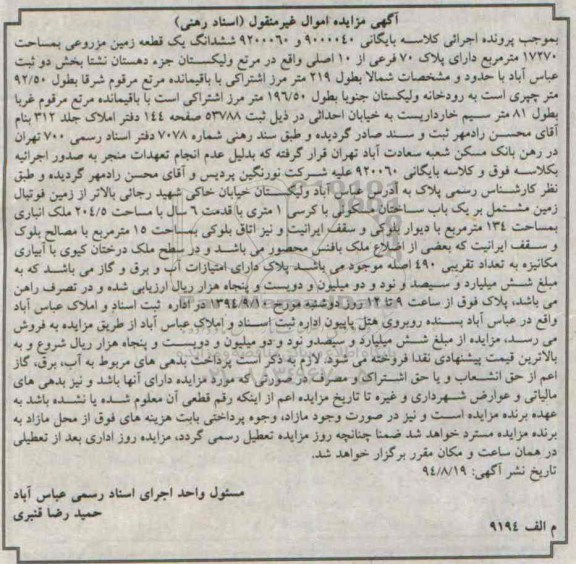 آگهی مزایده اموال غیرمنقول (اسناد رهنی)
بموجب پرونده اجرائی کلاسه بایگانی ۹۰۰۰۰۴۰ و ۹۲۰۰۰۶۰ ششدانگ یک قطعه زمین مزروعی بمساحت
۱۷۲۷۰ مترمربع دارای پلاک ۷۰ فرعی از ۱۰ اصلی واقع در مرتع ولیکستان جزء دهستان نشتا بخش دو ثبت
عباس آباد با حدود و مشخصات شمالا بطول ۲۱۹ متر مرز اشتراکی با باقیمانده مرتع مرقوم شرقا بطول ۹۲/۵۰
متر چپری است به رودخانه ولیکستان جنوبا بطول ۱۹۶/۵۰ متر مرز اشتراکی است با باقیمانده مرتع مرقوم غربا
بطول ۸۱ متر سیم خارداریست به خیابان احداثی در ذیل ثبت ۵۳۷۸۸ صفحه ۱۴۴ دفتر املاک جلد ۳۱۲ بنام
آقای محسن رادمهر ثبت و سند صادر گردیده و طبق سند رهنی شماره ۷۰۷۸ دفتر اسناد رسمی ۷۰۰ تهران
در رهن بانک مسکن شعبه سعادت آباد تهران قرار گرفته که بدلیل عدم انجام تعهدات منجر به صدور اجرائیه
بکلاسه فوق و کلاسه بایگانی ۹۲۰۰۶۰ علیه شرکت نورنگین پردیس و آقای محسن رادمهر گردیده و طبق
نظر کارشناس رسمی پلاک به آدرس عباس آباد ولیکستان خیابان خاکی شهید رجائی بالاتر از زمین فوتبال
زمین مشتمل بر یک باب ساختمان مسکونی با کرسی ۱ متری با قدمت ۶ سال با مساحت ۲۰۴/۵ ملک انباری
بمساحت ۱۳۴ مترمربع با دیوار بلوکی و سقف ایرانیت و نیز اتاق بلوکی بمساحت ۱۵ مترمربع با مصالح بلوک
و سقف ایرانیت که بعضی از اضلاع ملک بافنس محصور می باشد و در سطح ملک درختان کیوی با آبیاری
مکانیزه به تعداد تقریبی ۴۹۰ اصله موجود می باشد پلاک دارای امتیازات آب و برق و گاز می باشد که به
مبلغ شش میلیارد و سیصد و نود و دو میلیون و دویست و پنجاه هزار ریال ارزیابی شده و در تصرف راهن
می باشد، پلاک فوق از ساعت ۹ تا ۱۲ روز دوشنبه مورخ ۱۳۹۴/۹/۱۶ در اداره ثبت اسناد و املاک عباس آباد
واقع در عباس آباد بسنده روبروی هتل پاپیون اداره ثبت اسناد و املاک عباس آباد از طریق مزایده به فروش
می رسد، مزایده از مبلغ شش میلیارد و سیصدو نود و دو میلیون و دویست و پنجاه هزار ریال شروع و به
بالاترین قیمت پیشنهادی نقدا فروخته می شود. لازم به ذکر است پرداخت بدهی های مربوط به آب، برق، گاز
اعم از حق انشعاب و یا حق اشتراک و مصرف در صورتی که مورد مزایده دارای آنها باشد و نیز بدهی های
مالیاتی و عوارض شهرداری و غیره تا تاریخ مزایده اعم از اینکه رقم قطعی آن معلوم شده یا نشده باشد به
عهده برنده مزایده است و نیز در صورت وجود مازاد، وجوه پرداختی بابت هزینه های فوق از محل مازاد به
برنده مزایده مسترد خواهد شد ضمنا چنانچه روز مزایده تعطیل رسمی گردد، مزایده روز اداری بعد از تعطیلی
در همان ساعت و مکان مقرر برگزار خواهد شد.
تاریخ نشر آگهی: ۹۴/۸/۱۹
مسئول واحد اجرای اسناد رسمی عباس آباد
حمید رضا قنبری
م الف ۹۱۹۴